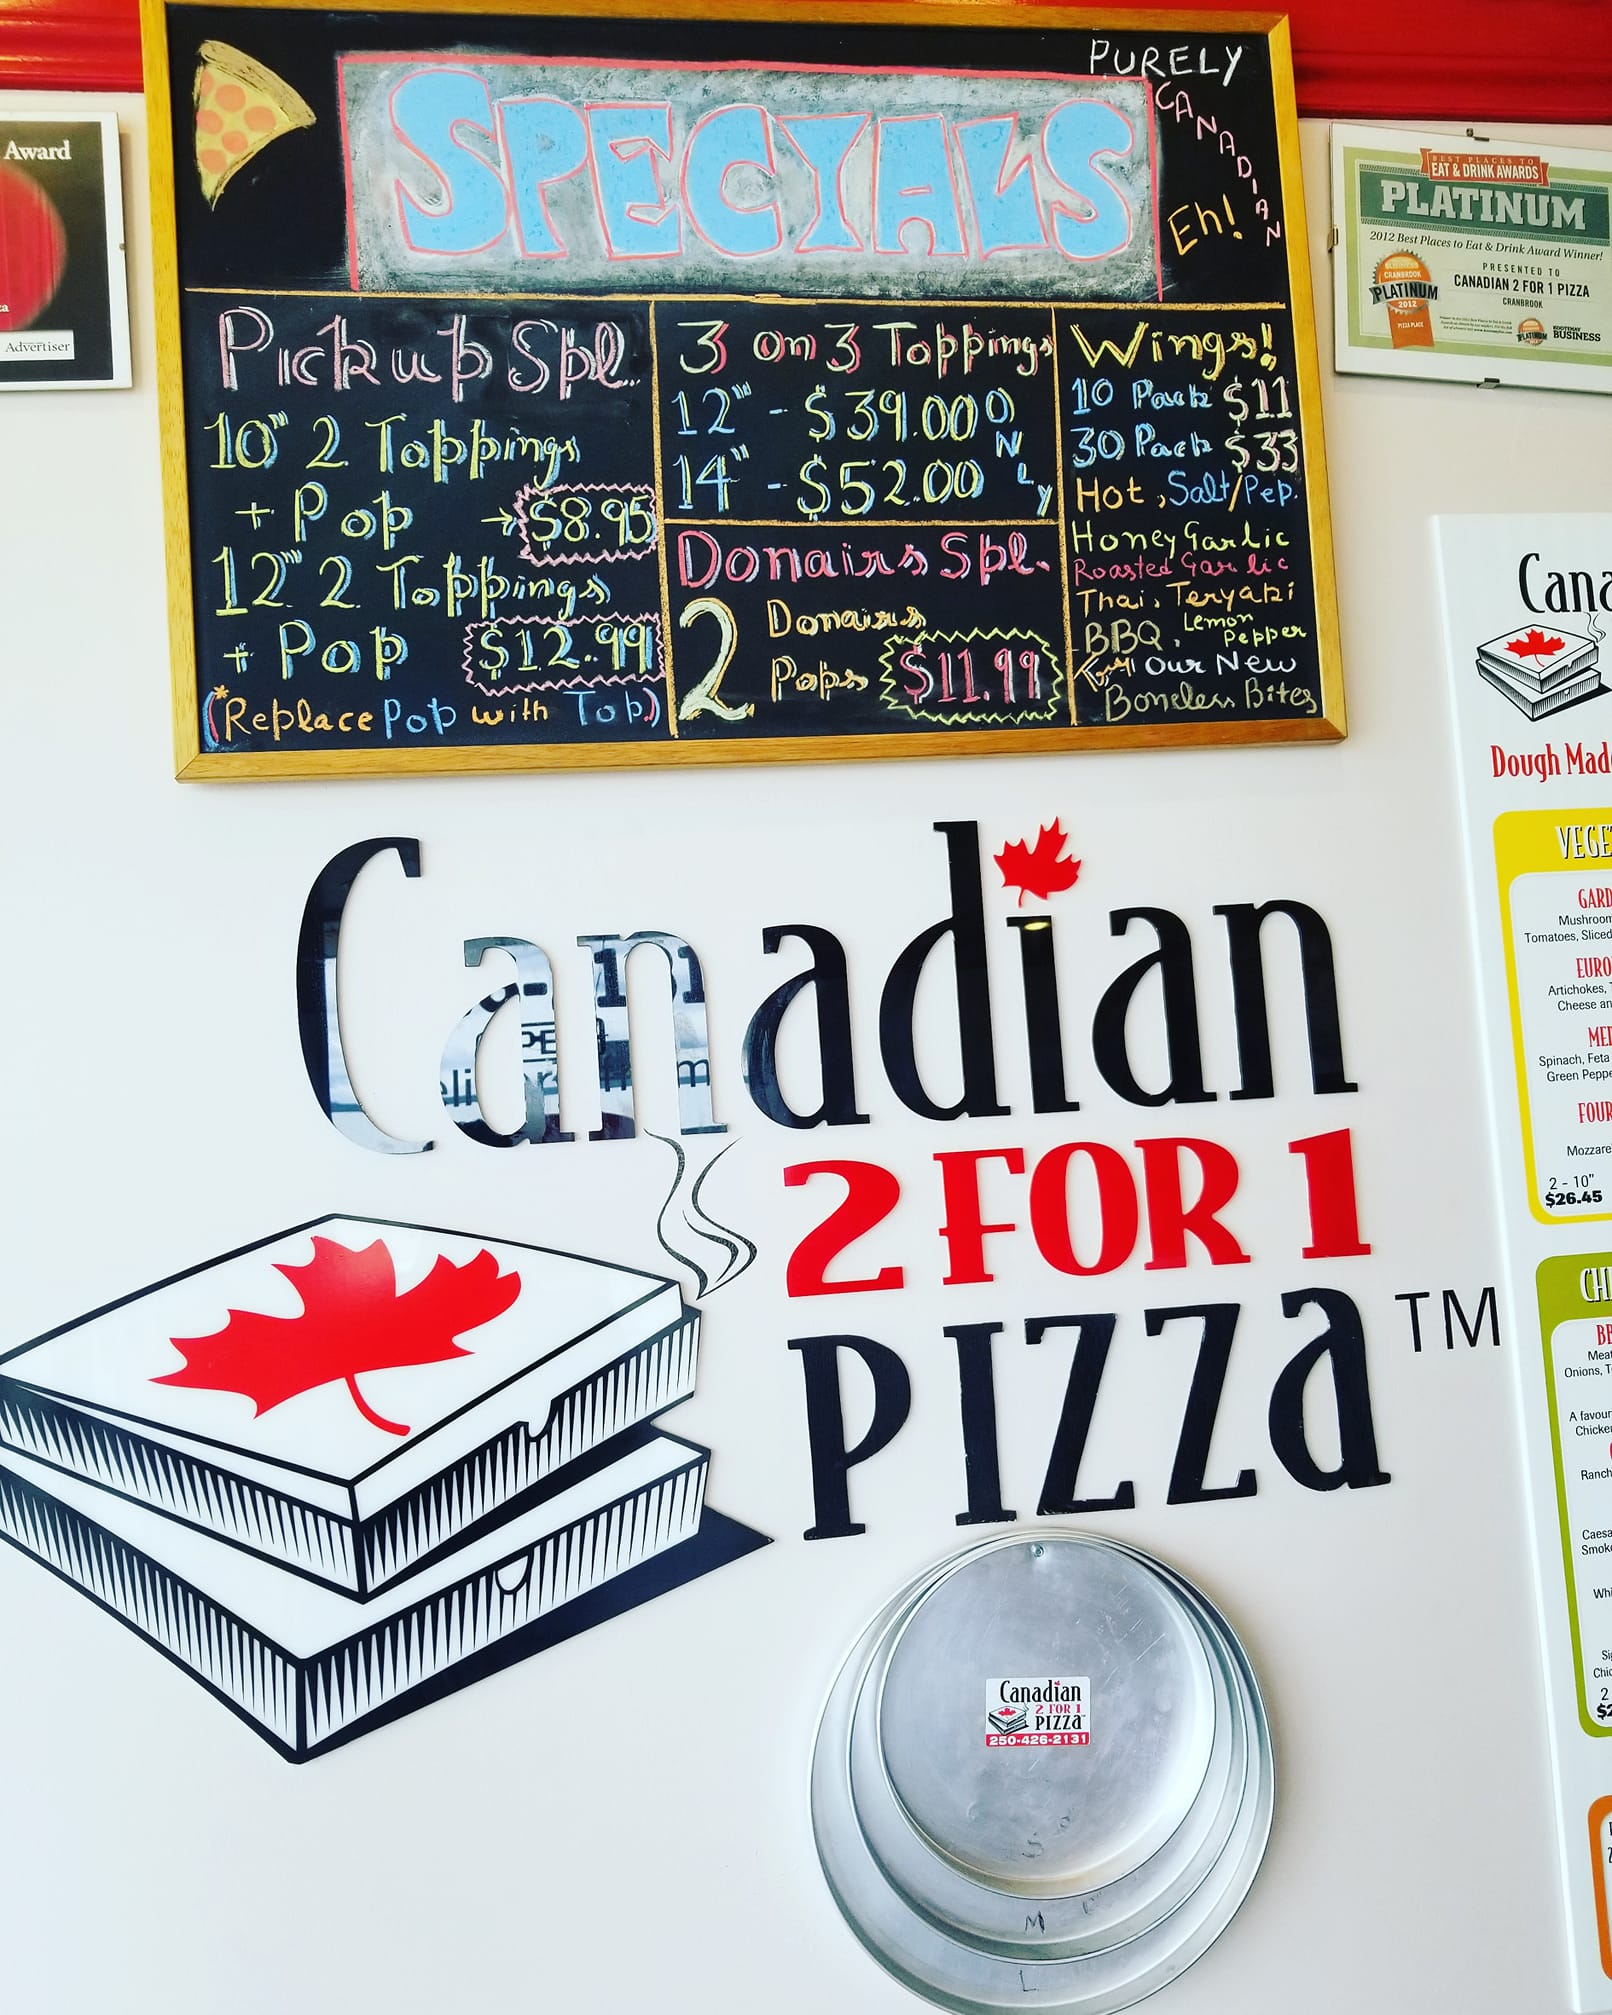 Award
Advertiser
SPECIALS
PURELY
CANADIAN
Eh!
Pickup Spl.
10" 2 Toppings
+ Pop → $8.95
12" 2 Toppings
+ Pop $12.99
(*Replace Pop with Top.)
3 on 3 Toppings
12" - $39.00
14" - $52.00
ONLY
Donairs Spl.
2 Donairs
Pops $11.99
Wings!
10 Pack $11
30 Pack $33
Hot, Salt/Pep.
Honey Garlic
Roasted Garlic
Thai, Teryaki
BBQ, Lemon
Pepper
Our New
Boneless Bites
BEST PLACES TO
EAT & DRINK AWARDS
PLATINUM
2012 Best Places to Eat & Drink Award Winner!
PRESENTED TO
CANADIAN 2 FOR 1 PIZZA
CRANBROOK
CRANBROOK
PLATINUM
2012
PIZZA PLACE
PLATINUM
KOOTENAY
BUSINESS
Canadian
2 FOR 1
PIZZa TM
Canadian
2 FOR 1
PIZZa
250-426-2131
S
M
L
Cana
Dough Made
VEGE
GARD
Mushroom
Tomatoes, Sliced
EURO
Artichokes, T
Cheese an
MED
Spinach, Feta
Green Peppe
FOUR
Mozzare
2 - 10"
$26.45
CHI
BB
Meat
Onions, T
A favour
Chicke
Ranch
Caesa
Smok
Whi
Si
Chic
2
$2